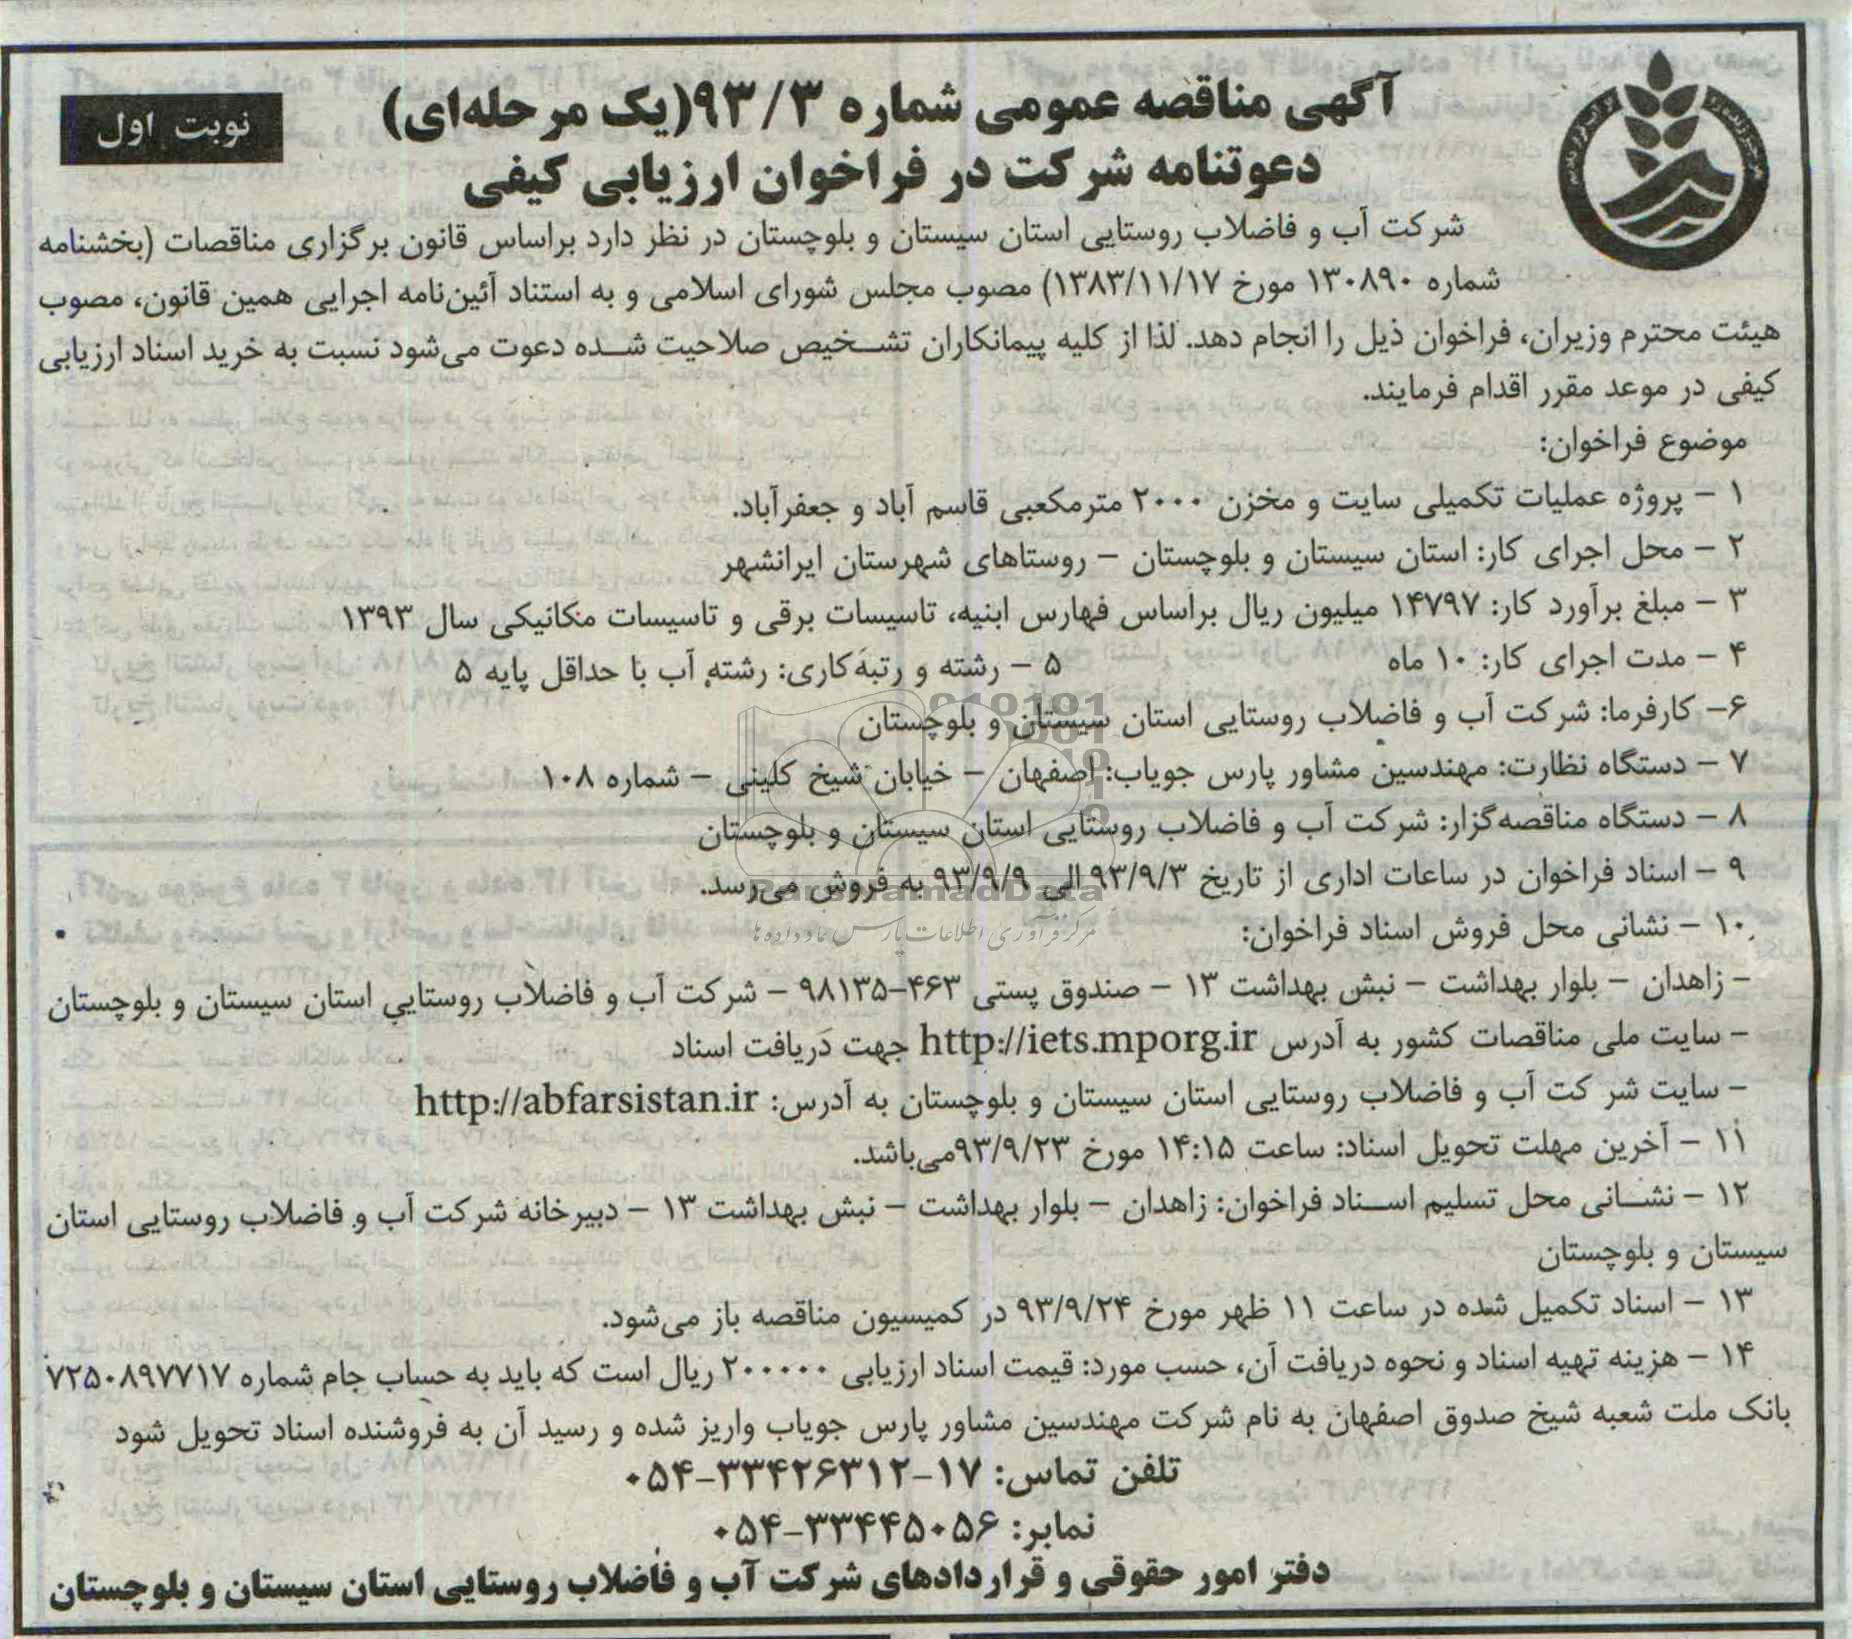 آگهی مناقصه عمومی شماره ۹۳/۳(یک مرحله‌ای)
نوبت اول
دعوتنامه شرکت در فراخوان ارزیابی کیفی
شرکت آب و فاضلاب روستایی استان سیستان و بلوچستان در نظر دارد براساس قانون برگزاری مناقصات (بخشنامه
شماره ۱۳۰۸۹۰ مورخ ۱۳۸۳/۱۱/۱۷) مصوب مجلس شورای اسلامی و به استناد آئین‌نامه اجرایی همین قانون، مصوب
هیئت محترم وزیران، فراخوان ذیل را انجام دهد. لذا از کلیه پیمانکاران تشخیص صلاحیت شده دعوت می‌شود نسبت به خرید اسناد ارزیابی
کیفی در موعد مقرر اقدام فرمایند.
موضوع فراخوان:
۱ – پروژه عملیات تکمیلی سایت و مخزن ۲۰۰۰ مترمکعبی قاسم آباد و جعفرآباد.
۲ – محل اجرای کار: استان سیستان و بلوچستان – روستاهای شهرستان ایرانشهر
۳ – مبلغ برآورد کار: ۱۴۷۹۷ میلیون ریال براساس فهارس ابنیه، تاسیسات برقی و تاسیسات مکانیکی سال ۱۳۹۳
۴ – مدت اجرای کار: ۱۰ ماه ۵ – رشته و رتبه‌کاری: رشته آب با حداقل پایه ۵
۶– کارفرما: شرکت آب و فاضلاب روستایی استان سیستان و بلوچستان
۷ – دستگاه نظارت: مهندسین مشاور پارس جویاب: اصفهان – خیابان شیخ کلینی – شماره ۱۰۸
۸ – دستگاه مناقصه‌گزار: شرکت آب و فاضلاب روستایی استان سیستان و بلوچستان
۹ – اسناد فراخوان در ساعات اداری از تاریخ ۹۳/۹/۳ الی ۹۳/۹/۹ به فروش می‌رسد.
ParsNamadData
مرکز فرآوری اطلاعات پارس نماد داده ها
۱۰ – نشانی محل فروش اسناد فراخوان:
– زاهدان – بلوار بهداشت – نبش بهداشت ۱۳ – صندوق پستی ۴۶۳–۹۸۱۳۵ – شرکت آب و فاضلاب روستایی استان سیستان و بلوچستان
– سایت ملی مناقصات کشور به آدرس http://iets.mporg.ir جهت دریافت اسناد
– سایت شر کت آب و فاضلاب روستایی استان سیستان و بلوچستان به آدرس: http://abfarsistan.ir
۱۱ – آخرین مهلت تحویل اسناد: ساعت ۱۴:۱۵ مورخ ۹۳/۹/۲۳می‌باشد.
۱۲ – نشانی محل تسلیم اسناد فراخوان: زاهدان – بلوار بهداشت – نبش بهداشت ۱۳ – دبیرخانه شرکت آب و فاضلاب روستایی استان
سیستان و بلوچستان
۱۳ – اسناد تکمیل شده در ساعت ۱۱ ظهر مورخ ۹۳/۹/۲۴ در کمیسیون مناقصه باز می‌شود.
۱۴ – هزینه تهیه اسناد و نحوه دریافت آن، حسب مورد: قیمت اسناد ارزیابی ۲۰۰۰۰۰ ریال است که باید به حساب جام شماره ۷۲۵۰۸۹۷۷۱۷
بانک ملت شعبه شیخ صدوق اصفهان به نام شرکت مهندسین مشاور پارس جویاب واریز شده و رسید آن به فروشنده اسناد تحویل شود
تلفن تماس: ۱۷–۳۳۴۲۶۳۱۲–۰۵۴
نمابر: ۳۳۴۴۵۰۵۶–۰۵۴
دفتر امور حقوقی و قراردادهای شرکت آب و فاضلاب روستایی استان سیستان و بلوچستان